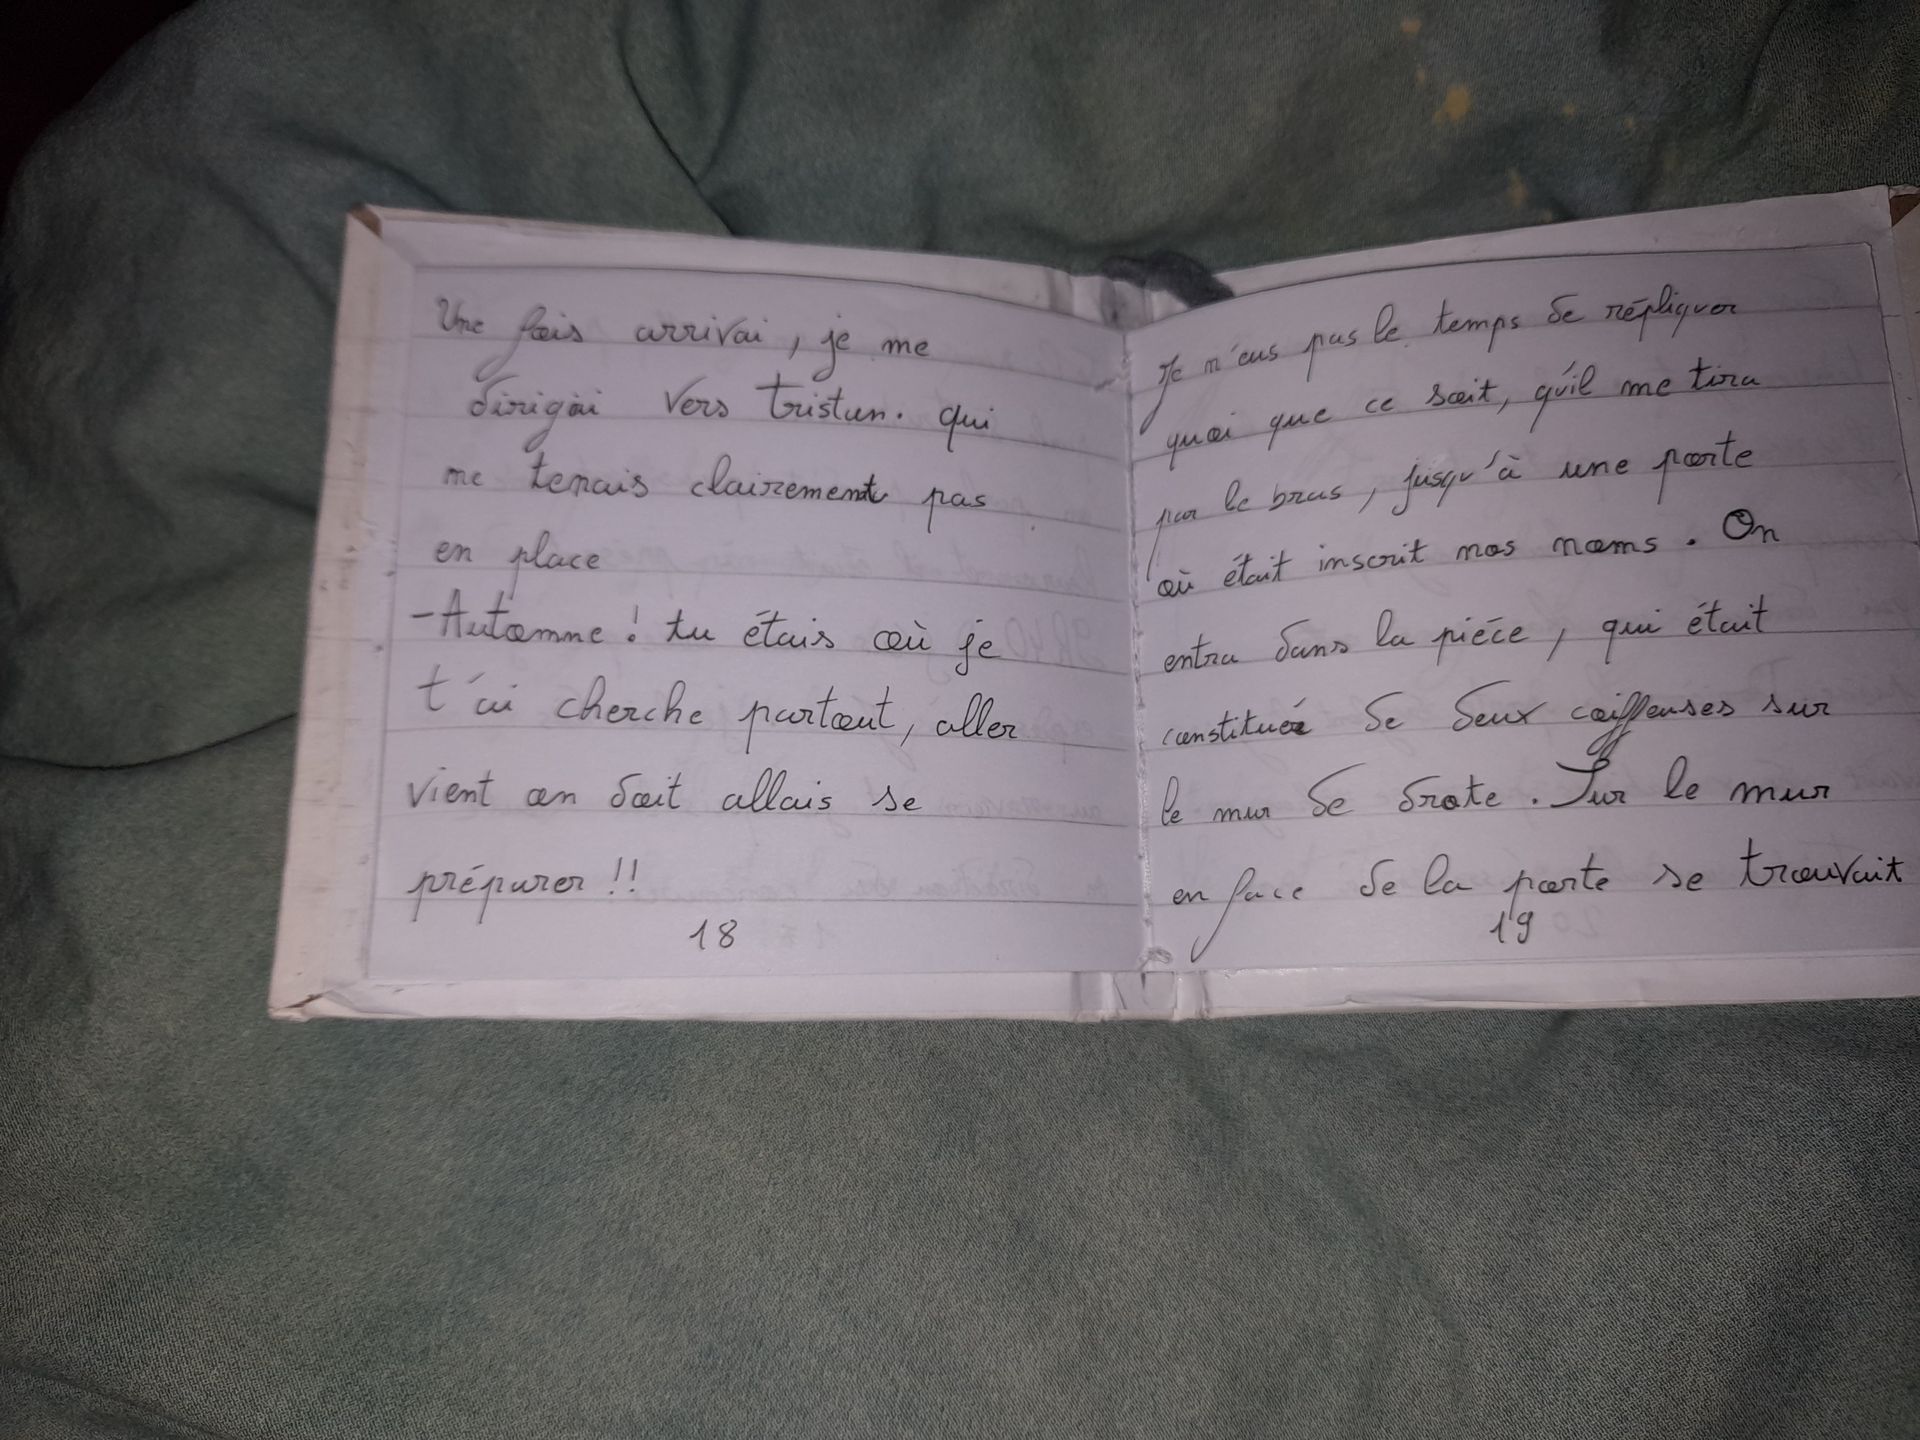 Une fois arrivai, je me
dirigai vers tristan. qui
me tenais clairement pas
en place
-Automne ! tu étais où je
t'ai cherche partout, aller
vient on doit allais se
préparer !!
18
Je n'eus pas le temps de répliquer
quoi que ce soit, qu'il me tira
par le bras, jusqu'à une porte
où était inscrit nos noms. On
entra dans la piéce, qui était
constitué de deux coiffeuses sur
le mur de drote. Sur le mur
en face de la porte se trouvait
19